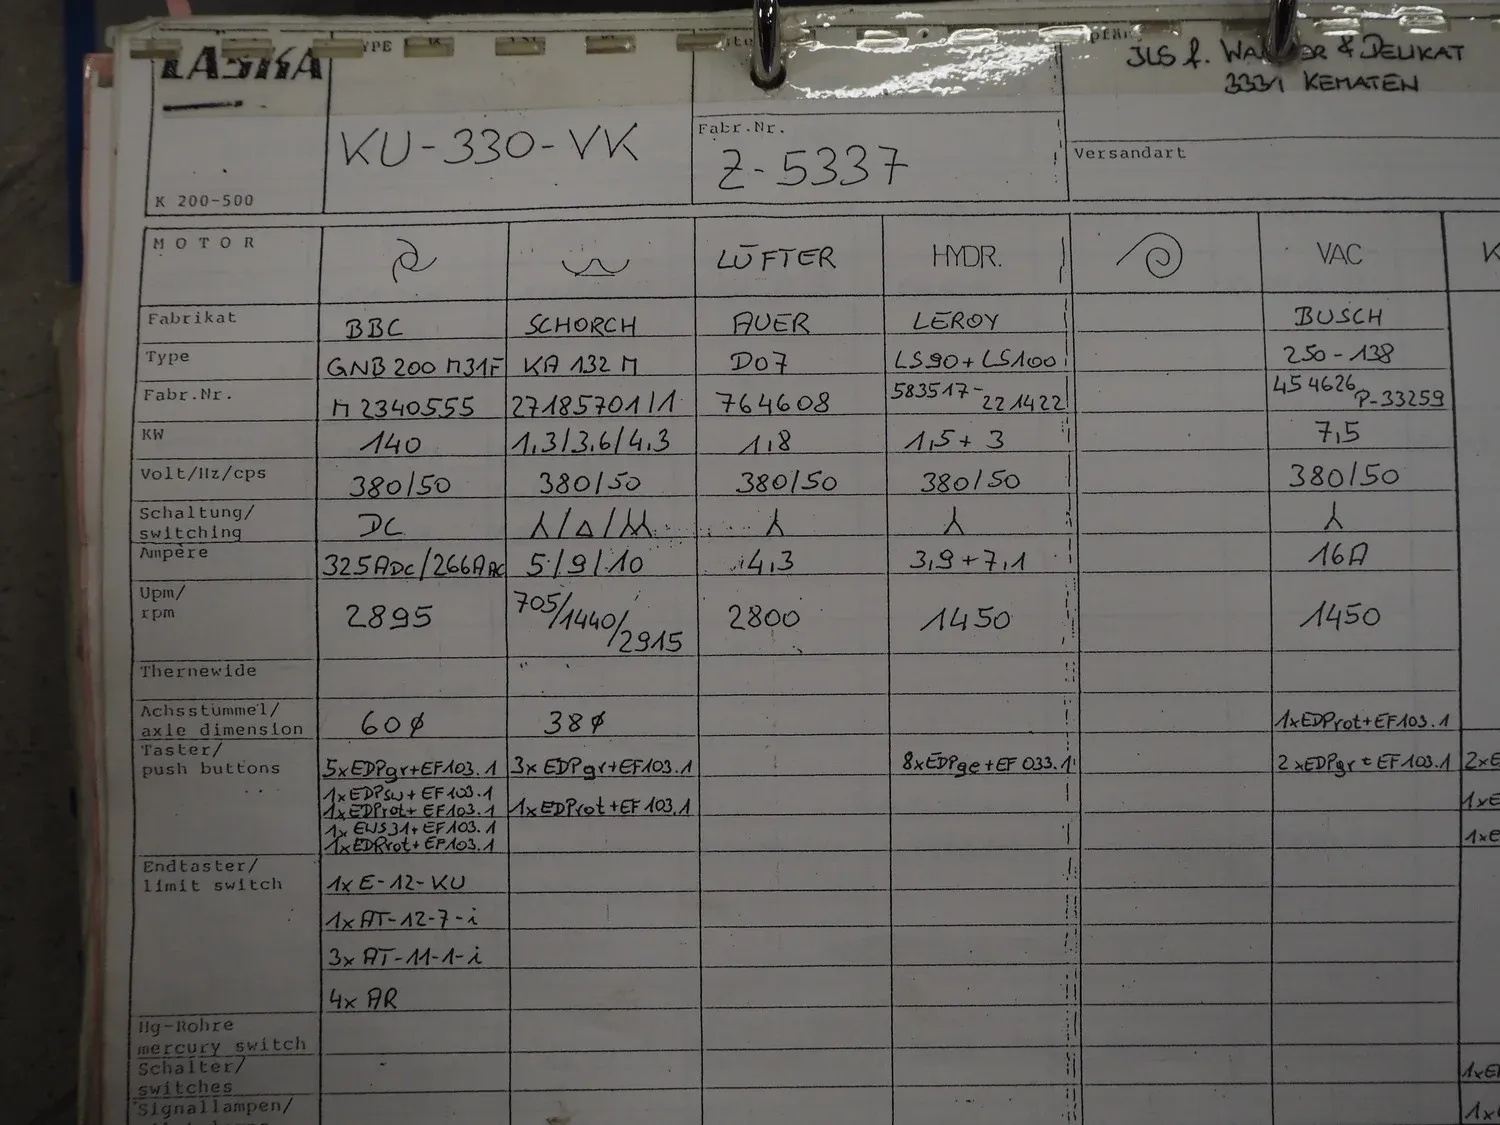 LASKA
K 200-500
KU-330-VK
Fabr.Nr.
Z-5337
JLS f. & DELIKAT
3331 KEMATEN
Versandart
MOTOR LÜFTER HYDR. VAC
Fabrikat BBC SCHORCH AUER LEROY BUSCH
Type GNB 200 M31F KA 132 M D07 LS90+LS100 250-138
Fabr.Nr. M2340555 27185701/1 764608 583517-221422 454626 P-33259
KW 140 1,3/3,6/4,3 1,8 1,5+3 7,5
Volt/Hz/cps 380/50 380/50 380/50 380/50 380/50
Schaltung/
switching DC
Ampère 325ADC/266AAC 5/9/10 4,3 3,9+7,1 16A
Upm/
rpm 2895 705/1440/2915 2800 1450 1450
Thernewide
Achsstummel/
axle dimension 60ø 38ø 1xEDProt+EF103.1
Taster/
push buttons 5xEDPgr+EF103.1 3xEDPgr+EF103.1 8xEDPge+EF033.1 2xEDPgr+EF103.1
1xEDPsw+EF103.1
1xEDProt+EF103.1 1xEDProt+EF103.1
1xEWS31+EF103.1
1xEDProt+EF103.1
Endtaster/
limit switch 1x E-12-KU
1x AT-12-7-i
3x AT-11-1-i
4x AR
Hg-Rohre
mercury switch
Schalter/
switches
Signallampen/